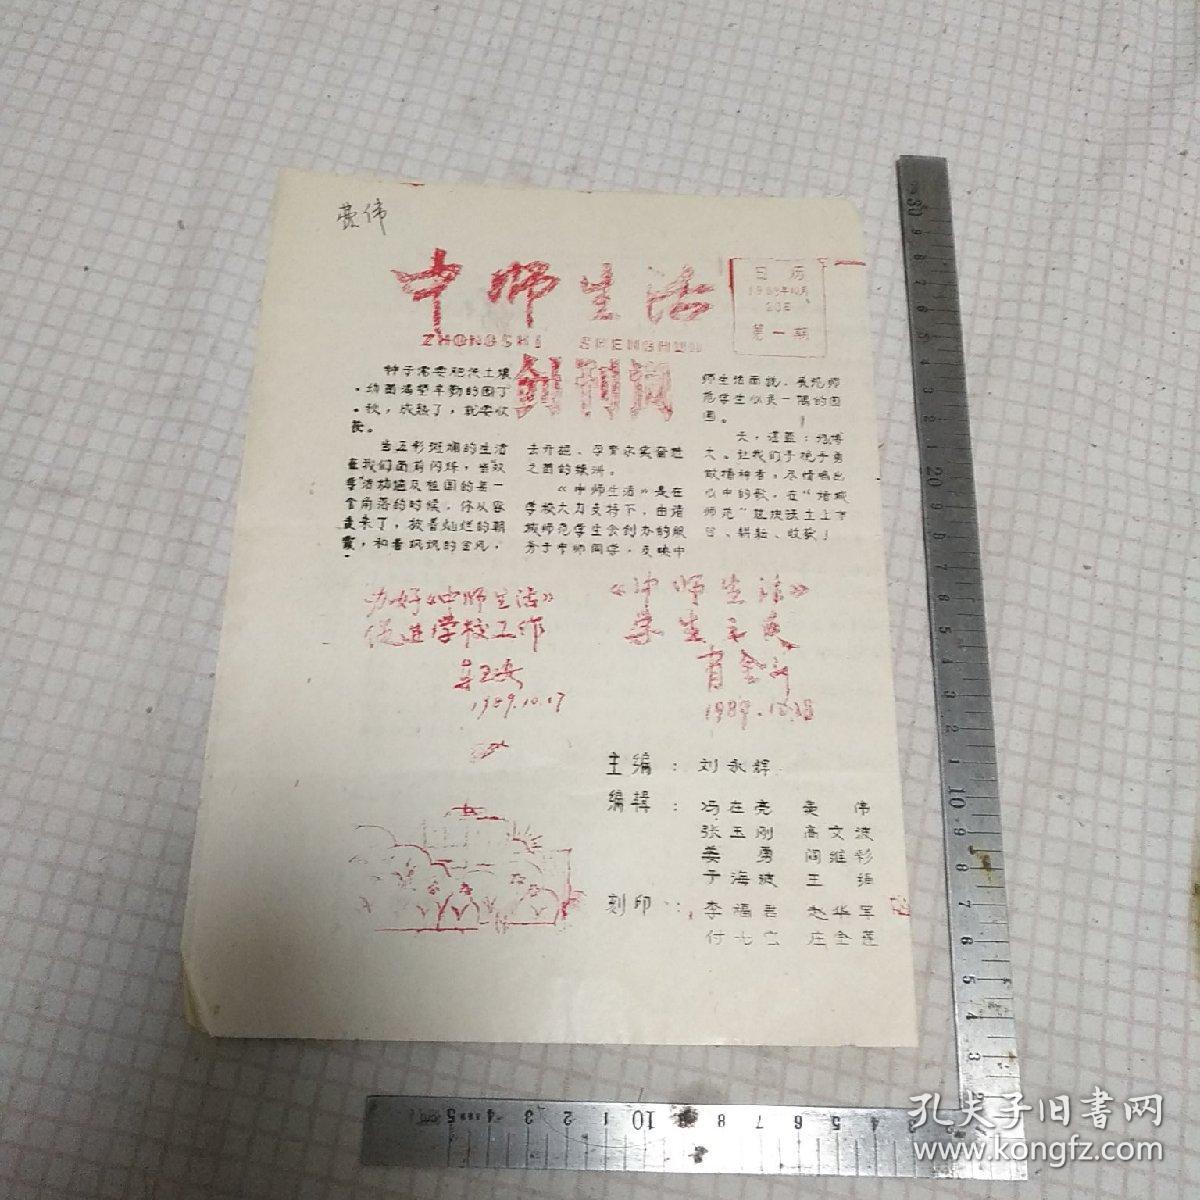 伟
中师生活
ZHONGSHI SHENGHUO
日历
1989年10月
20日
第一期
创刊词
种子需要肥沃土壤
，幼苗渴望辛勤的园丁
。秋，成熟了，就要收
获。
当五彩斑斓的生活
在我们面前闪烁，当双
的时候，你从容
走来了，披着灿烂的朝
霞，和着飒飒的金风，
去开拓、孕育
之茵的绿洲。
《中师生活》是在
学校大力支持下，由诸
城师范学生会创办的服
务于中师同学，反映中
师生活面貌、展现师
范学生心灵一隅的园
圃。
天，湛蓝；地博
大。让我们手挽手勇
做播种者，尽情唱出
心中的歌，在“诸城
师范”这块沃土上
、耕耘、收获！
办好《中师生活》
促进学校工作
1989.10.17
《中师生活》
学生之友
1989.10.18
主编：刘永辉
编辑：冯在亮 伟
张玉刚 高文波
姜勇 闫维彩
于海波 王
刻印：李福君 赵华军
付 庄金莲
孔夫子旧书网
www.kongfz.com